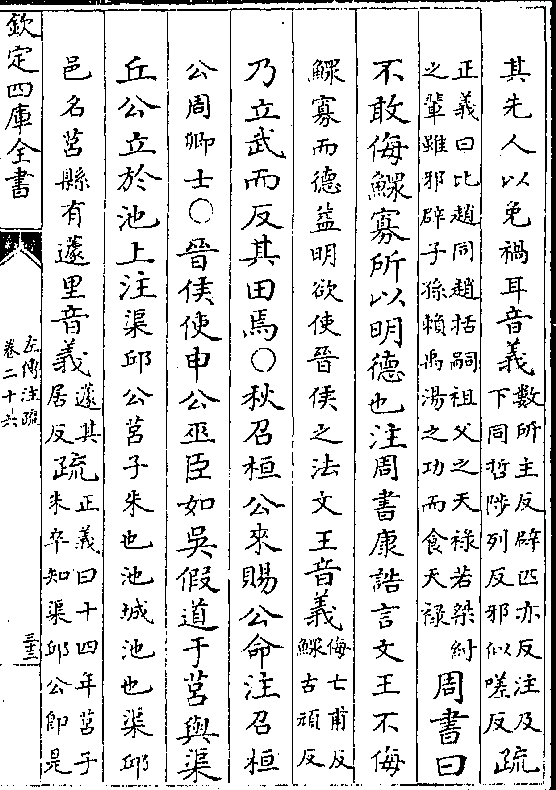 其先人以免禍耳音義數所主反辟匹亦反注及下同哲陟列反邪似嗟反疏
正義曰比趙同趙括嗣祖父之天祿若桀紂之輩雖邪辟子孫賴禹湯之功而食天祿周書曰
不敢侮鰥寡所以明德也注周書康誥言文王不侮
鰥寡而德益明欲使晉侯之法文王音義侮亡甫反鰥古頑反
乃立武而反其田焉○秋召桓公來賜公命注召桓
公周卿士○晉侯使申公巫臣如吳假道于莒與渠
丘公立於池上注渠邱公莒子朱也池城池也渠邱
邑名莒縣有蘧里音義蘧其居反疏正義曰十四年莒子朱卒知渠邱公即是
欽定四庫全書
左傳注疏
卷二十六
三十三